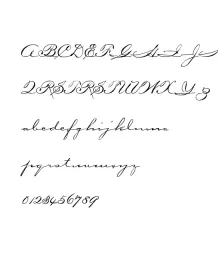 ABCDEFGHIJ
QRSTRSTUVWXYZ
abcdefghijklmno
pqrstuvwxyz
0123456789